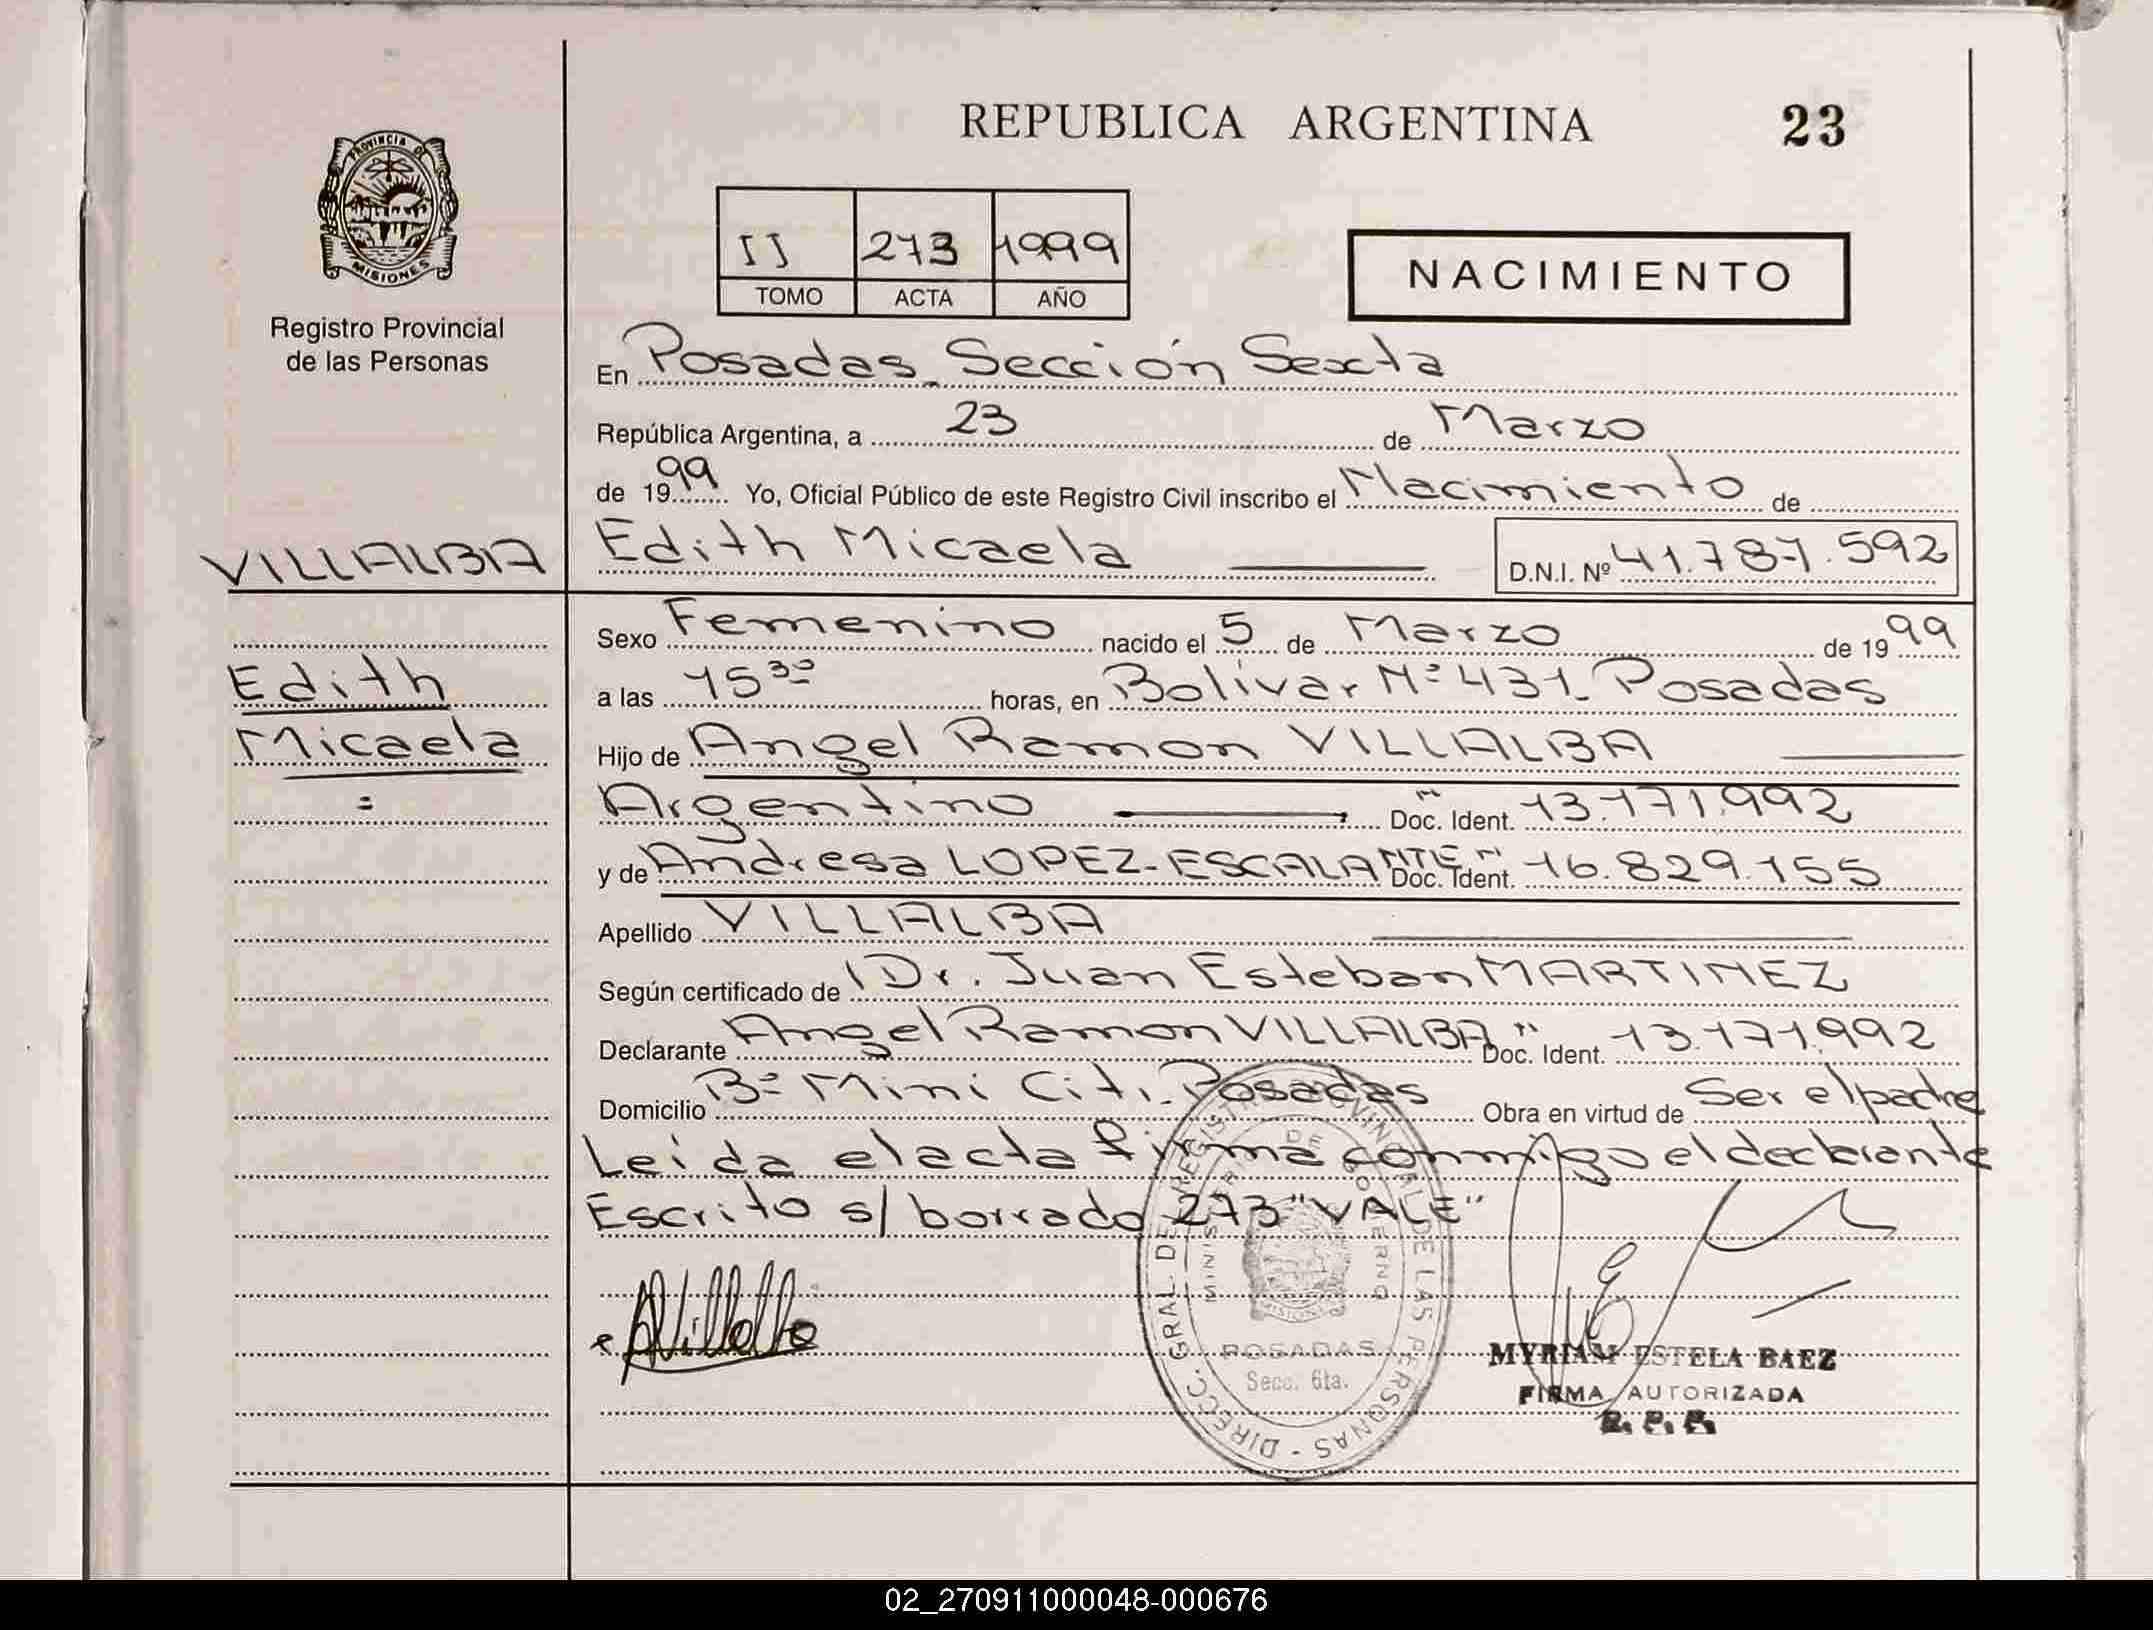 REPUBLICA ARGENTINA 23
PROVINCIA DE
MISIONES
Registro Provincial
de las Personas
II 273 1999
TOMO ACTA AÑO
NACIMIENTO
En Posadas Sección Sexta
República Argentina, a 23 de Marzo
de 1999 Yo, Oficial Público de este Registro Civil inscribo el Nacimiento de
VILLALBA
Edith Micaela D.N.I. Nº 41.787.592
Edith
Micaela
Sexo Femenino nacido el 5 de Marzo de 1999
a las 15³⁰ horas, en Bolívar Nº 431_Posadas
Hijo de Angel Ramon VILLALBA
Argentino Doc. Ident. 13.171.992
y de Andresa LOPEZ-ESCALANTE Doc. Ident. 16.829.155
Apellido VILLALBA
Según certificado de Dr. Juan Esteban MARTINEZ
Declarante Angel Ramon VILLALBA Doc. Ident. 13.171.992
Domicilio Bº Mini Citi_Posadas Obra en virtud de Ser el padre
Leida el acta firma conmigo el declarante
Escrito s/ borrado 273 "VALE"
AVillalba
DIRECC. GRAL. DE REGISTRO PROVINCIAL DE LAS PERSONAS
MINISTERIO DE GOBIERNO
MISIONES
POSADAS
Secc. 6ta.
MYRIAM ESTELA BAEZ
FIRMA AUTORIZADA
R. P. P.
02_270911000048-000676